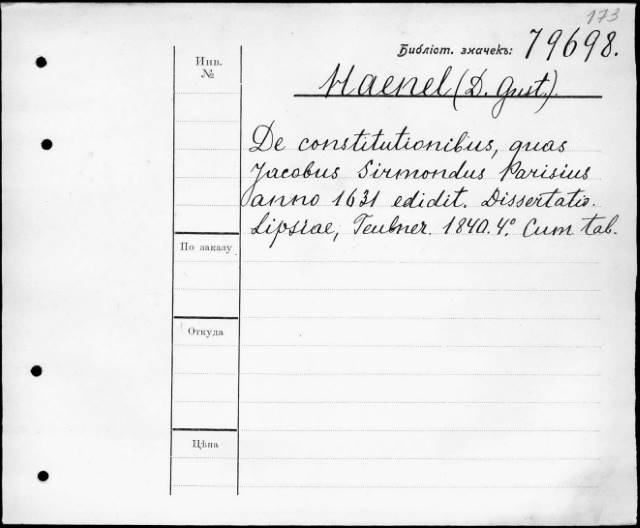 173
Библіот. значекъ: 79698.
Инв.
№
Haenel (D. Gust.).
De constitutionibus, quas
Jacobus Sirmondus Parisius
anno 1631 edidit. Dissertatio.
Lipsiae, Teubner. 1840. 4.° Cum tab.
По заказу
Откуда
Цѣна